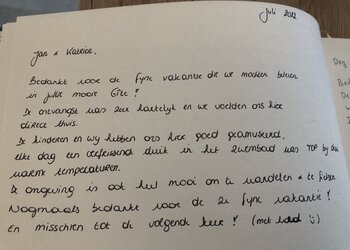 Juli 2012
Jan & Katrien,
Bedankt voor de fijne vakantie die we mochten beleven
in jullie mooie Gîte!
De ontvangst was zeer hartelijk en we voelden ons hier
direct thuis.
De kinderen en wij hebben ons hier goed geamuseerd,
elke dag een verfrissende duik in het zwembad was TOP bij deze
warme temperaturen.
De omgeving is ook heel mooi om te wandelen & te fietsen
Nogmaals bedankt voor de 2e fijne vakantie!
En misschien tot de volgende keer! (met hond ☺)
Dag